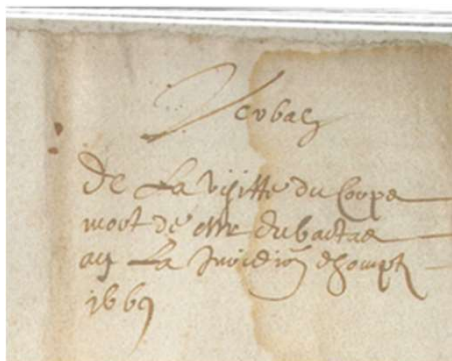 Verbal
de La visitte du Corps
mort de Mre dubartas
au La Jurid͠ion dhompts
1669